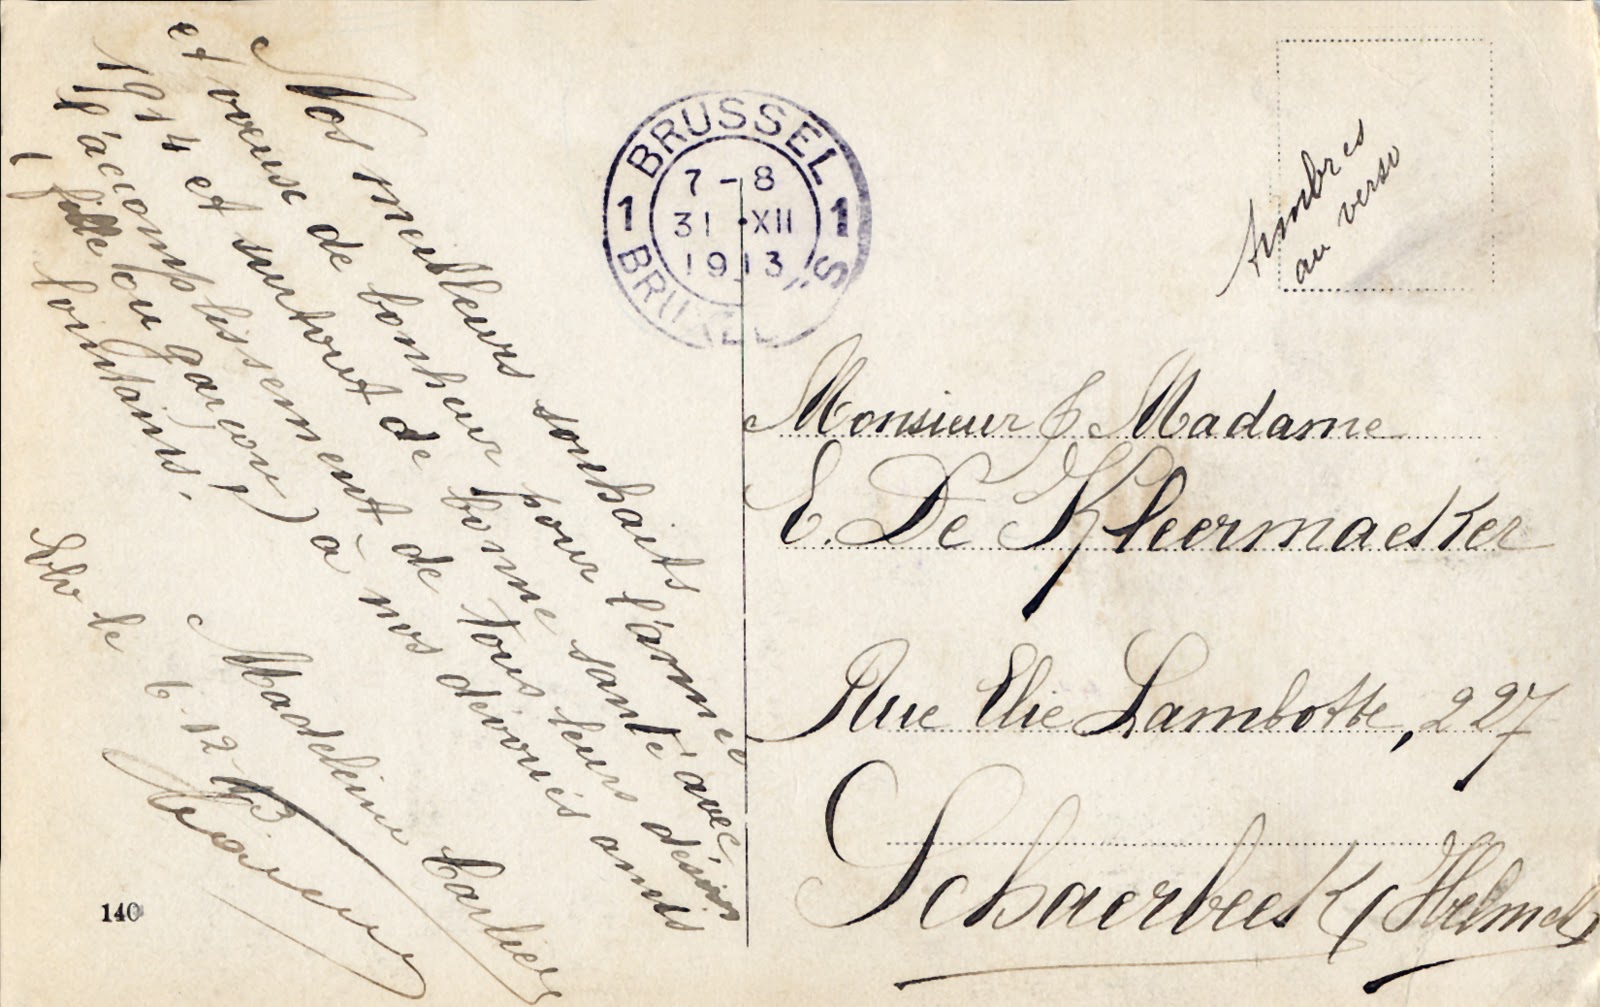 Nos meilleurs souhaits
et voeux de bonheur pour l'année
1914 et surtout de bonne santé avec
l'accomplissement de tous leurs désirs
(fille ou garçon!) à nos dévoués amis
lointains.
Madeleine Carlier
le 6-12-13
BRUSSEL
1 1
7-8
31 XII
1913
BRUXELLES
timbres
au verso
Monsieur & Madame
E. De Kleermaeker
Rue Elie Lambotte, 227
Schaerbeek (Helmet)
140